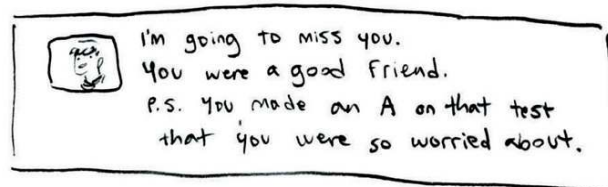 I'm going to miss you.
You were a good friend.
P.S. You made an A on that test
that you were so worried about.